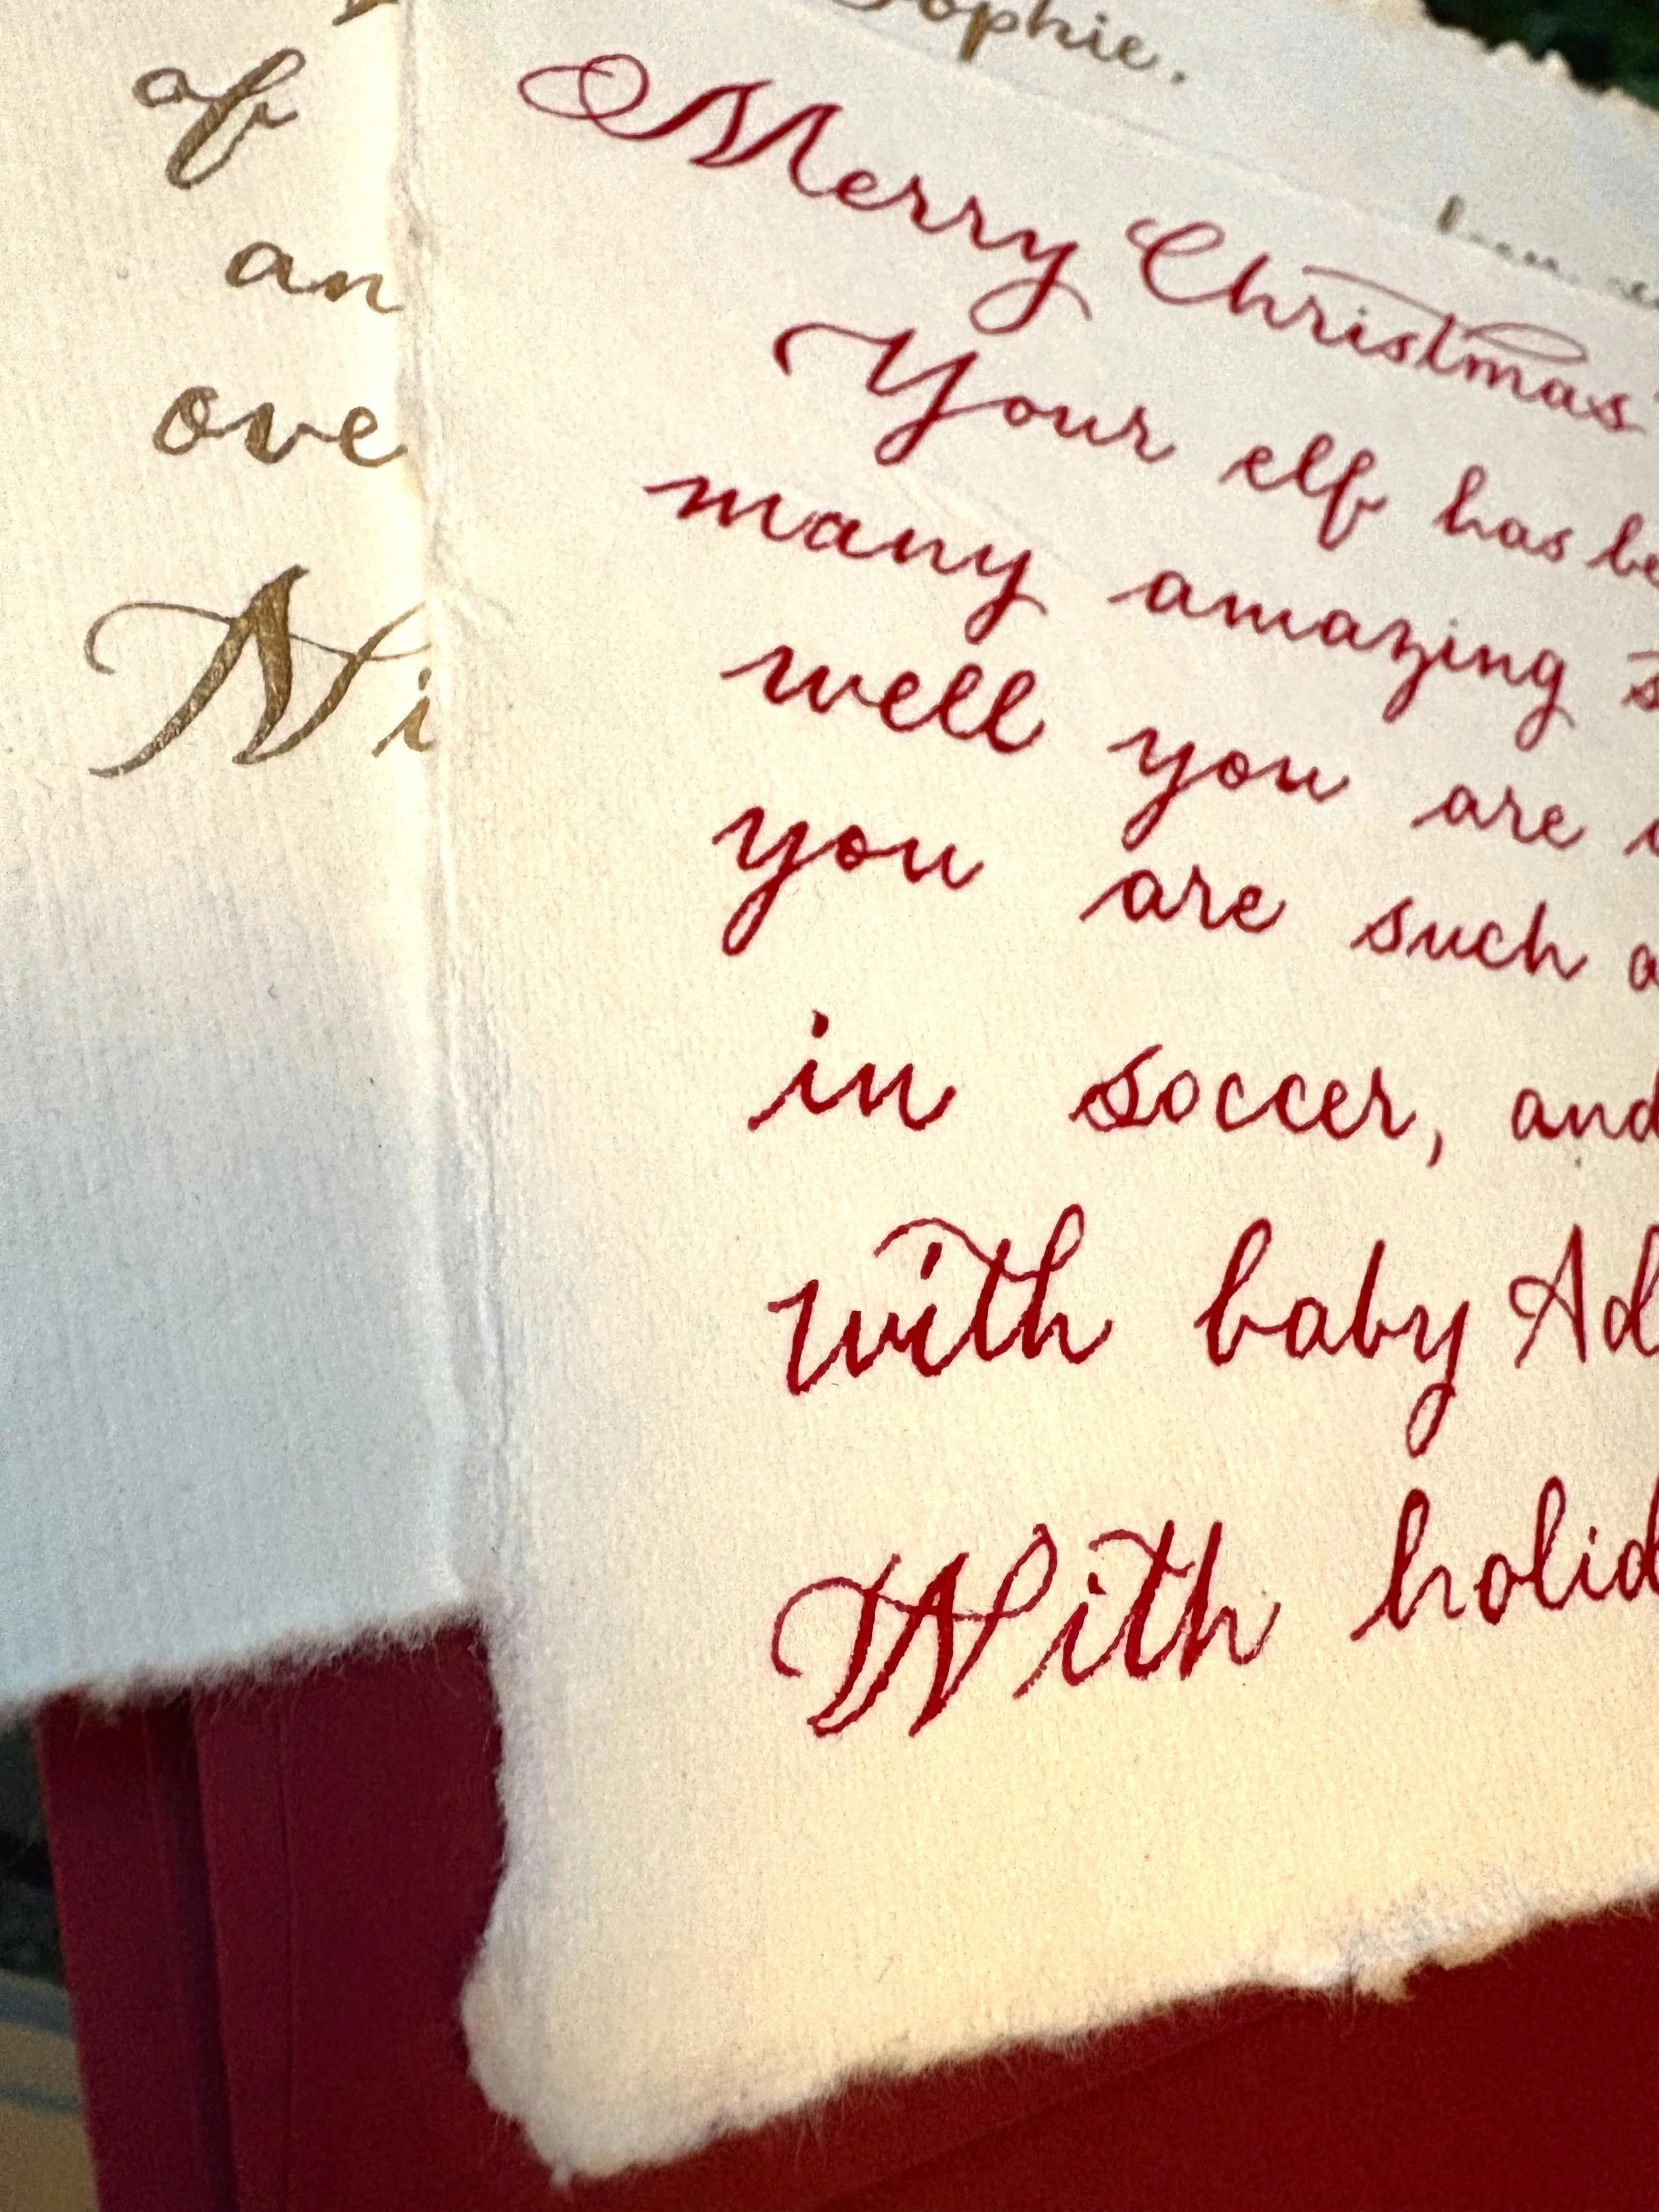 Sophie.
of
an
ove
Ni
Merry Christmas
Your elf has be
many amazing s
well you are
you are such a
in soccer, and
with baby Ad
With holid